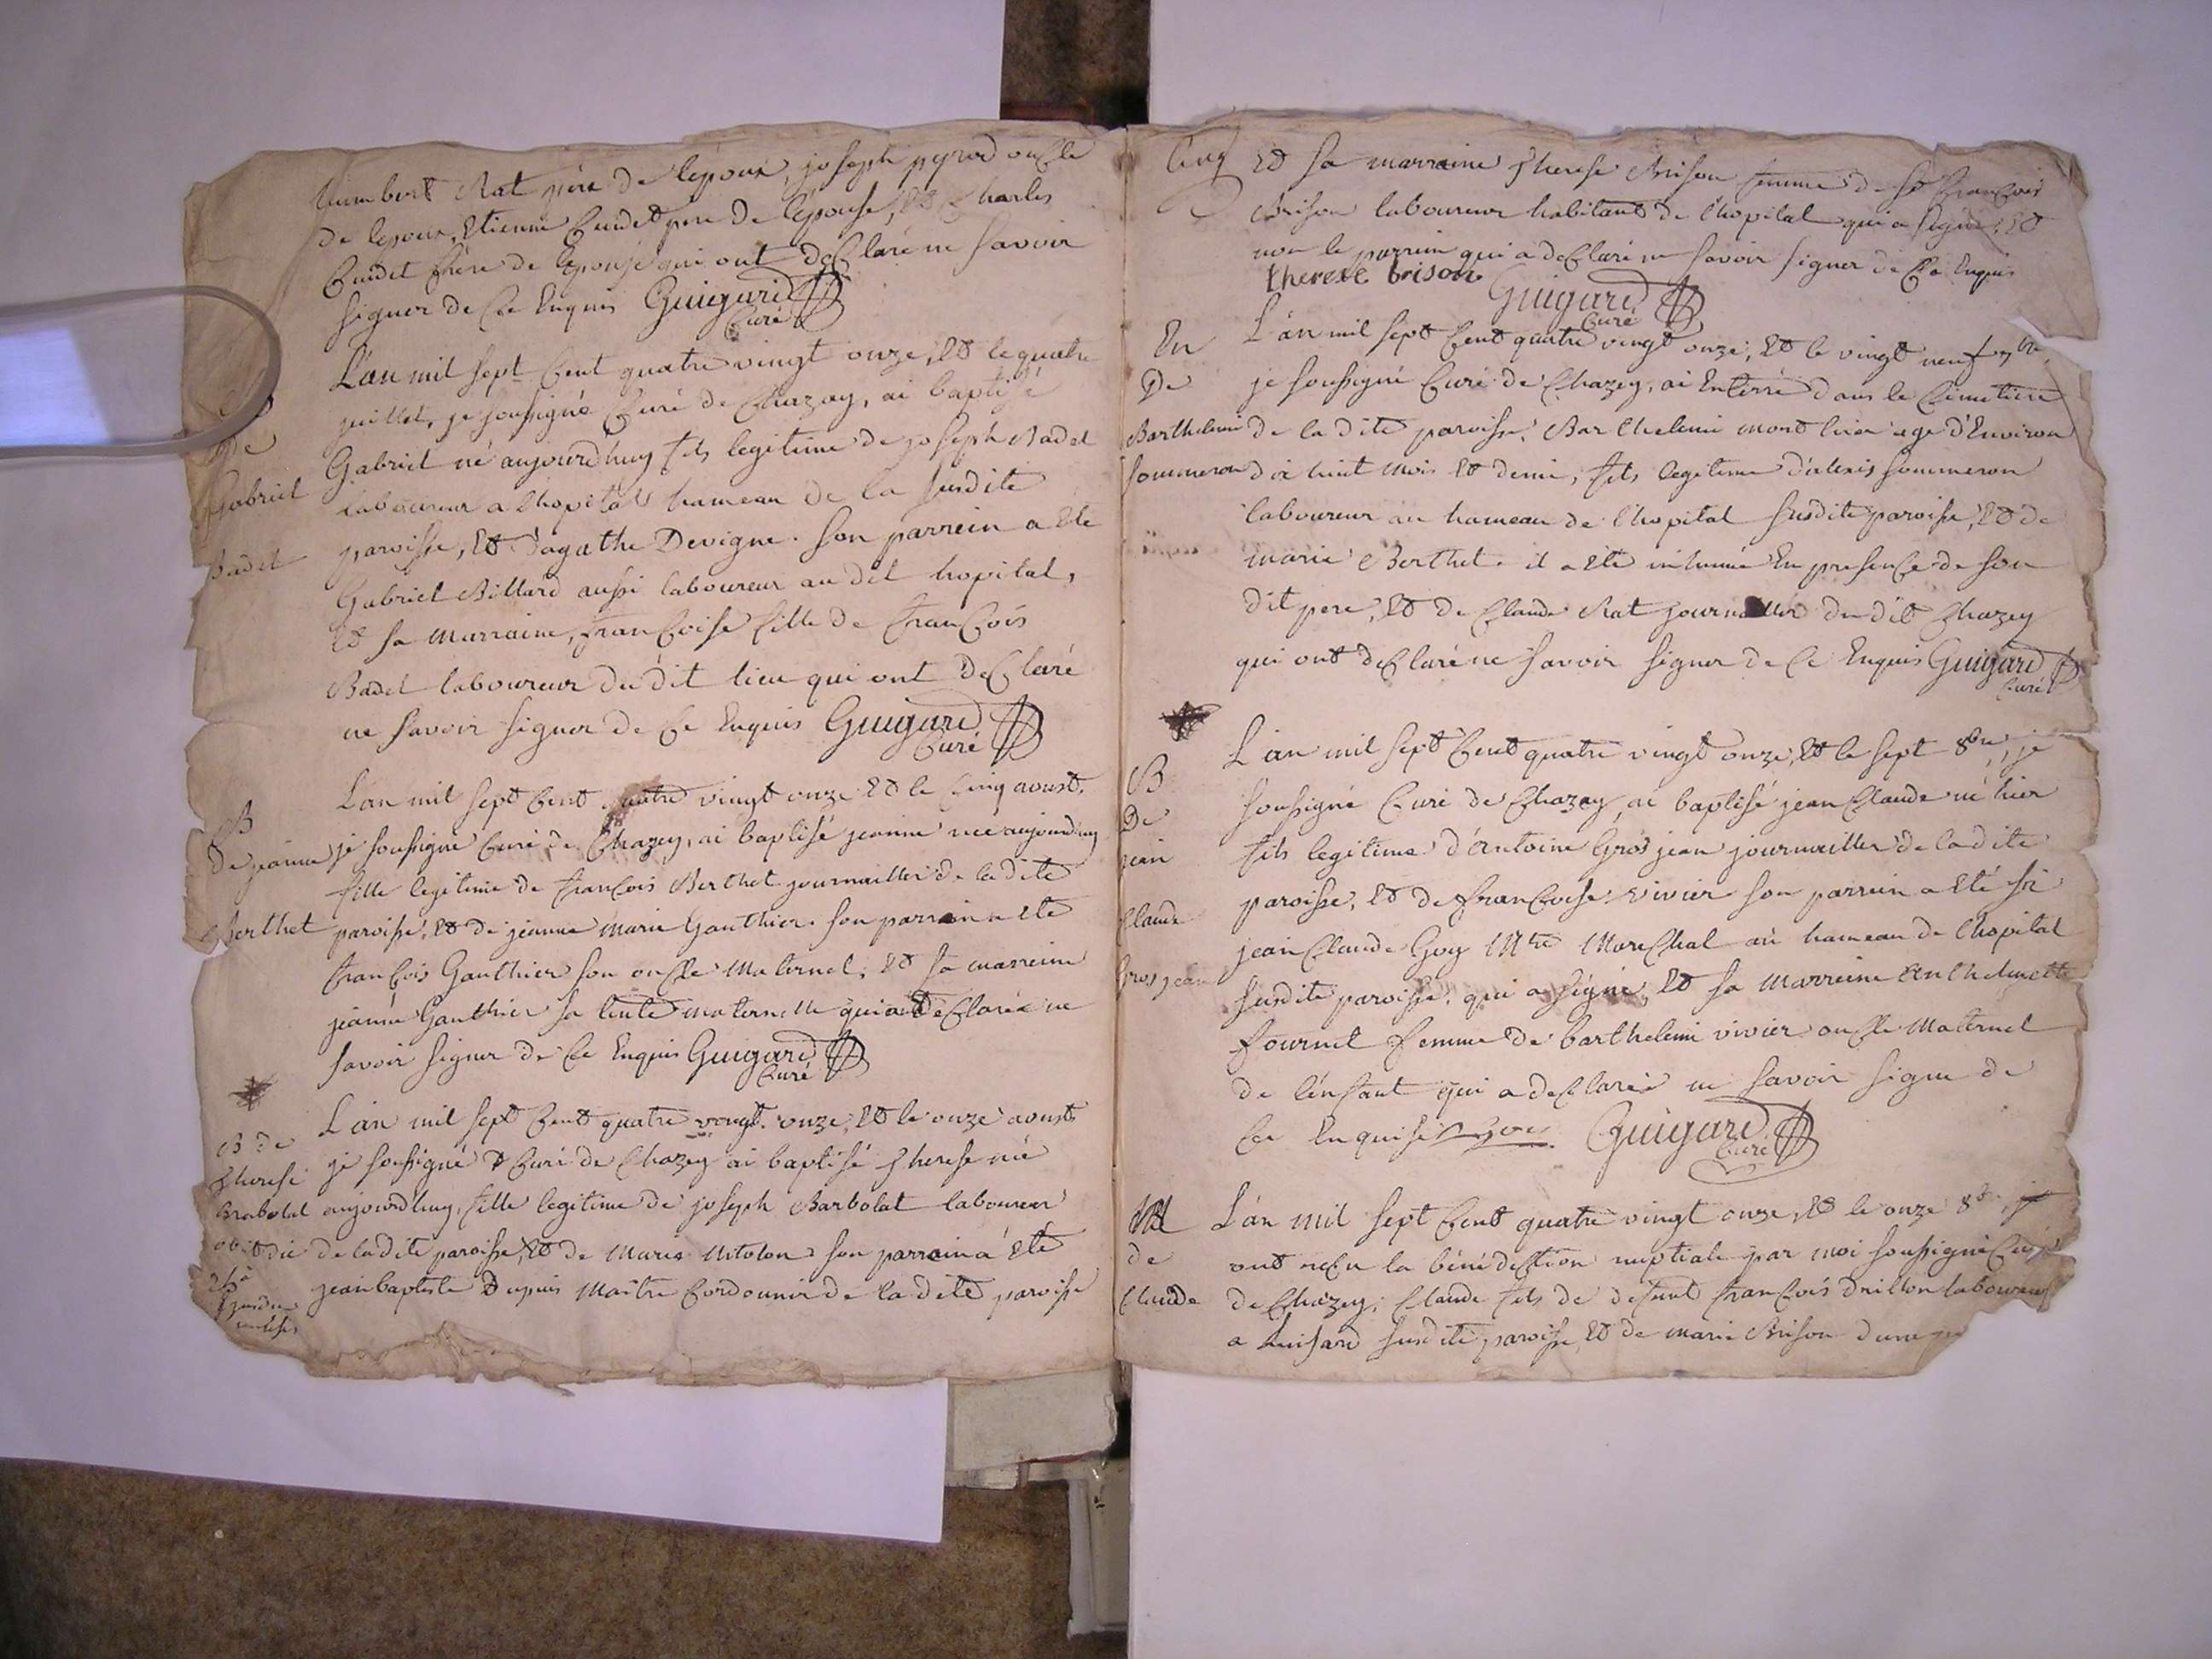 humbert Rat père de l'époux, joseph pyrod oncle
de lepoux, Etienne Cuidet pere de lepouse, Et Charles
Cuidet frère de lepouse qui ont déClaré ne savoir
signer de Ce Enquis Guigard
Curé
L'an mil sept Cent quatre vingt onze, Et le quatre
juillet, je soussigné Curé de Chazey, ai baptisé
De
Gabriel né aujourd'huy fils legitime de joseph Badel
Gabriel
laboureur a lhopital hameau de la susdite
Badel
paroisse, Et d'agathe Devigne. son parrein a Eté
Gabriel Billard aussi laboureur au dit hopital,
Et sa marraine, franCoise fille de franCois
Badel laboureur du dit lieu qui ont déClaré
ne savoir signer de Ce Enquis Guigard
Curé
L'an mil sept Cent quatre vingt onze Et le Cinq aoust.
B
De jeanne
je soussigné Curé de Chazey, ai baptisé jeanne née aujourd'huy
fille legitime de franCois Berthet journaillier de la dite
Berthet
paroisse, Et de jeanne marie Gauthier. son parrain a Eté
franCois Gauthier son onCle maternel, Et sa marreine
jeanne Gauthier sa tente maternelle qui ont déClaré ne
savoir signer de Ce Enquis Guigard
Curé
L'an mil sept Cent quatre vingt onze, Et le onze aoust
B De
je soussigné Curé de Chazey ai baptisé Therese née
Therese
Brabolat
aujourd'huy, fille legitime de joseph Barbolat laboureur
obiit die
de la dite paroisse, Et de Marie Mitolon son parrain a Eté
jean baptiste Dupuis Maitre Cordonnier de la dite paroisse
Cinq
Et sa marraine Therese Brison femme de Sr FranCois
Brison laboureur habitant de l'hopital qui a signé, Et
non le parrein qui a deClaré ne savoir signer de Ce Enquis
therese brison Guigard
Curé
L'an mil sept Cent quatre vingt onze, Et le vingt neuf 7bre,
En
De
je soussigné Curé de Chazey, ai Enterré dans le Cimetiere
Barthelemi
de la dite paroisse, Barthelemi mort hier age d'Environ
Sommeron
dix huit mois Et demi, fils legitime d'alexis sommeron
laboureur au hameau de l'hopital susdite paroisse, Et de
marie Berthet. il a Eté inhumé En presenCe de son
dit pere, Et de Claude Rat journaillier du dit Chazey
qui ont déClaré ne savoir signer de Ce Enquis Guigard
Curé
L'an mil sept Cent quatre vingt onze, Et le sept 8bre, je
B
De
soussigné Curé de Chazey, ai baptisé jean Claude né hier
jean
fils legitime d'Antoine Gros jean journaillier de la dite
Claude
paroisse, Et de franCoise vivier son parrein a Eté Sr
jean Claude Goy Mtre MareChal au hameau de l'hopital
Gros jean
susdite paroisse. qui a signé, Et sa Marreine Anthelmette
fournel femme de barthelemi vivier onCle maternel
de l'enfant qui a deClaréé ne savoir signe de
Ce Enquise Goy Guigard
Curé
M
L'an mil sept Cent quatre vingt onze, Et le onze 8bre, je
de
ont reCu la bénédiCtion nuptiale par moi soussigné Curé
Claude
de Chazey, Claude fils de defunt franCois Drillon laboureur
a Luisard susdite paroisse, Et de marie Brison d'une